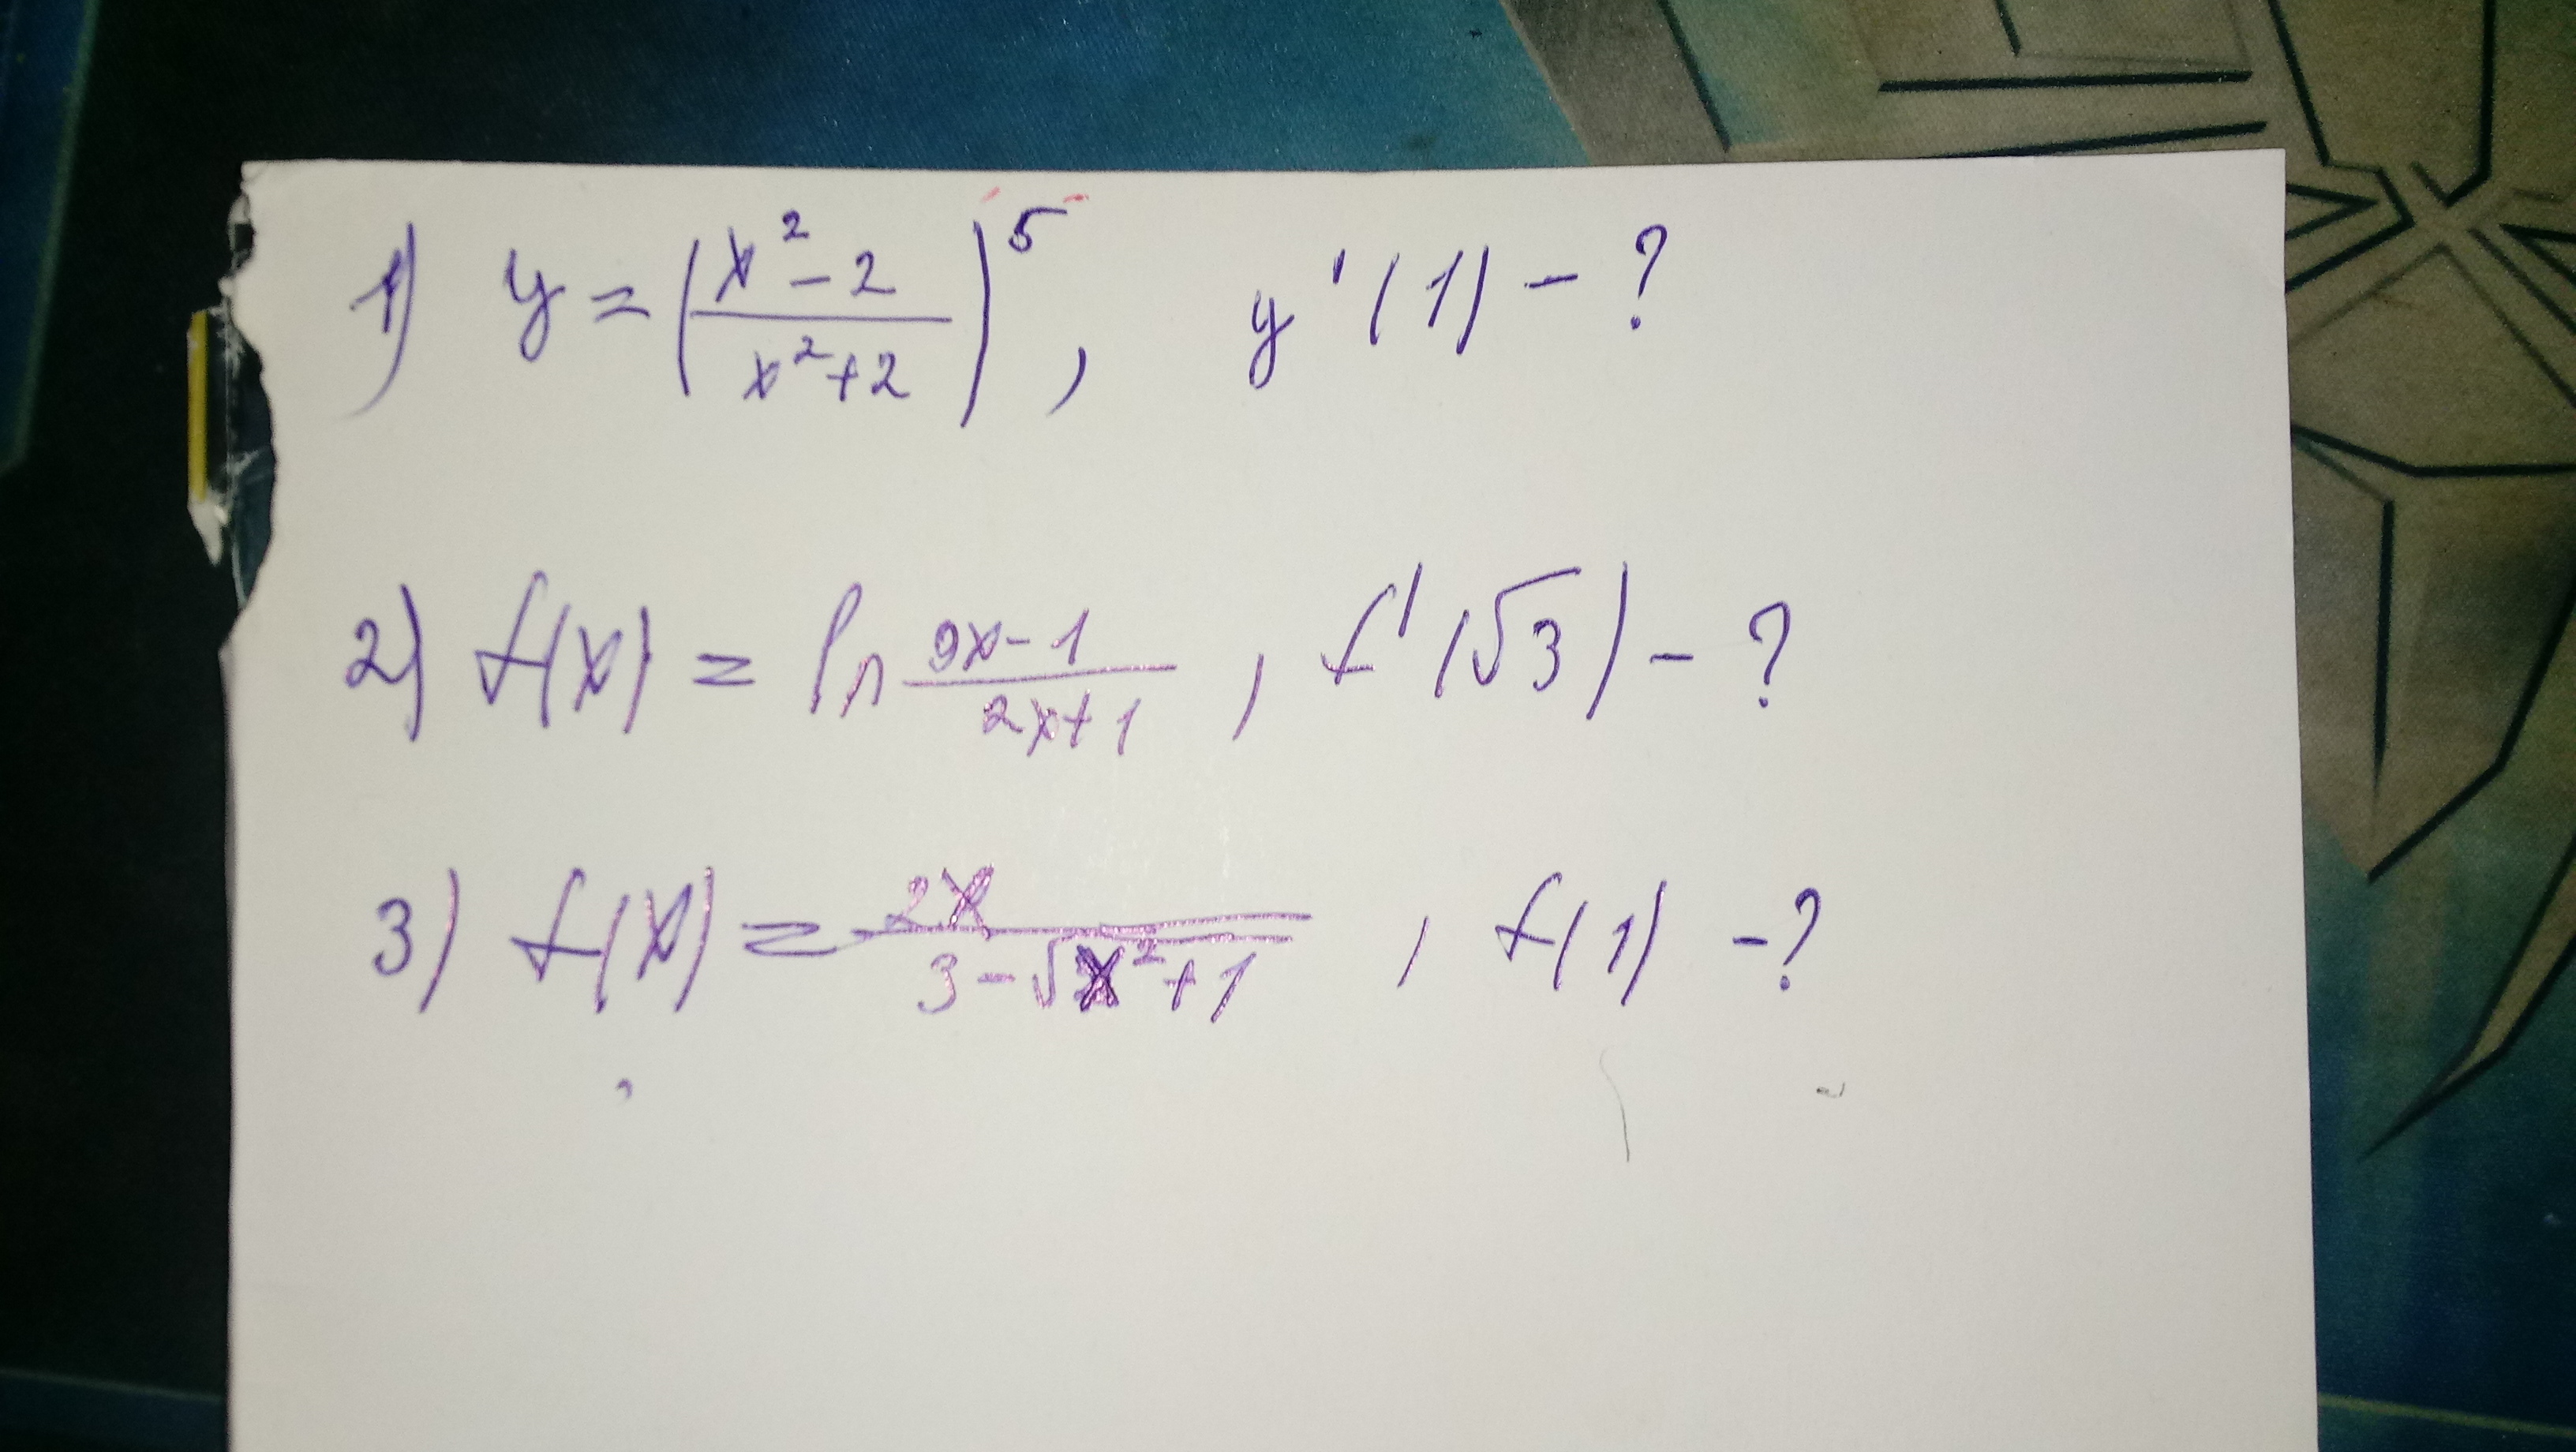 1) y = (x² - 2 / x² + 2)⁵, y'(1) - ?
2) f(x) = ln 9x - 1 / 2x + 1, f'(√3) - ?
3) f(x) = 2x / 3 - √x² + 1, f(1) - ?